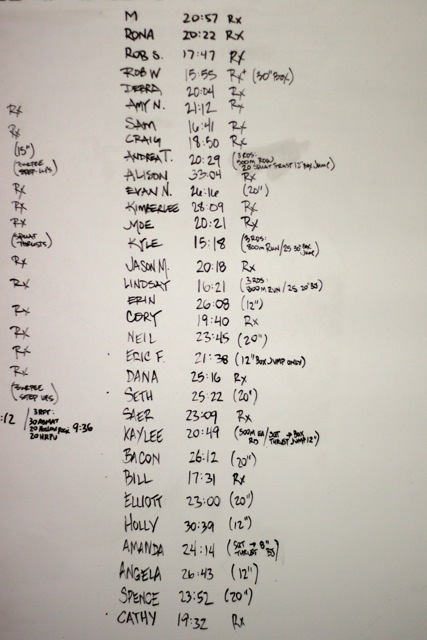 M 20:57 Rx
RONA 20:22 Rx
ROB S. 17:47 Rx
ROB W 15:55 Rx+ (30" BOX)
DEBRA 20:04 Rx
AMY N. 21:12 Rx
SAM 16:41 Rx
CRAIG 18:50 Rx
ANDREA T. 20:29 (3 RDS: 500M ROW 20 SQUAT THRUST 12" BOX JUMP)
ALISON 33:04 Rx
EVAN N. 26:16 (20")
KIMBERLEE 28:09 Rx
MOE 20:21 Rx
KYLE 15:18 (3 RDS: 800M RUN/25 30" BOX JUMP)
JASON M. 20:18 Rx
LINDSAY 16:21 (3 RDS: 800M RUN/25 20" BJ)
ERIN 26:08 (12")
CORY 19:40 Rx
NEIL 23:45 (20")
ERIC F. 21:38 (12" BOX JUMP ONLY)
DANA 25:16 Rx
SETH 25:22 (20")
SAER 23:09 Rx
KAYLEE 20:49 (500M EA RD / SQT THRUST → BOX JUMP 12")
BACON 26:12 (20")
BILL 17:31 Rx
ELLIOTT 23:00 (20")
HOLLY 30:39 (12")
AMANDA 24:14 (SQT THRUST → 8" BJ)
ANGELA 26:43 (12")
SPENCE 23:52 (20")
CATHY 19:32 Rx
Rx
Rx
(15")
(BURPEE STEP-UPS)
Rx
Rx
Rx
(SQUAT THRUSTS)
Rx
Rx
Rx
Rx
Rx
Rx
(BURPEE STEP UPS)
:12 / 3 RFT: 9:36
30 ABMAT
20 HOLLOW
20 HRPU